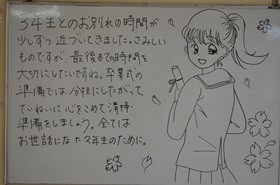 3年生とのお別れの時間が
少しずつ近づいてきました。さみしい
ものですが、最後まで時間を
大切にしたいですね。卒業式の
準備では分担にしたがって
ていねいに心をこめて清掃・
準備をしましょう。全ては
お世話になった3年生のために。